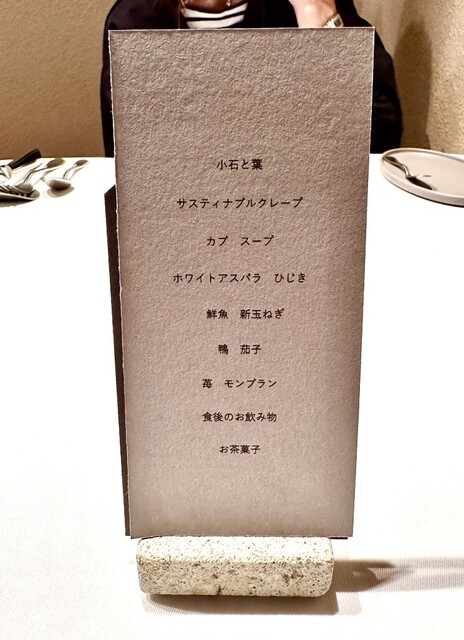 小石と葉
サスティナブルクレープ
カブ　スープ
ホワイトアスパラ　ひじき
鮮魚　新玉ねぎ
鴨　茄子
苺　モンブラン
食後のお飲み物
お茶菓子